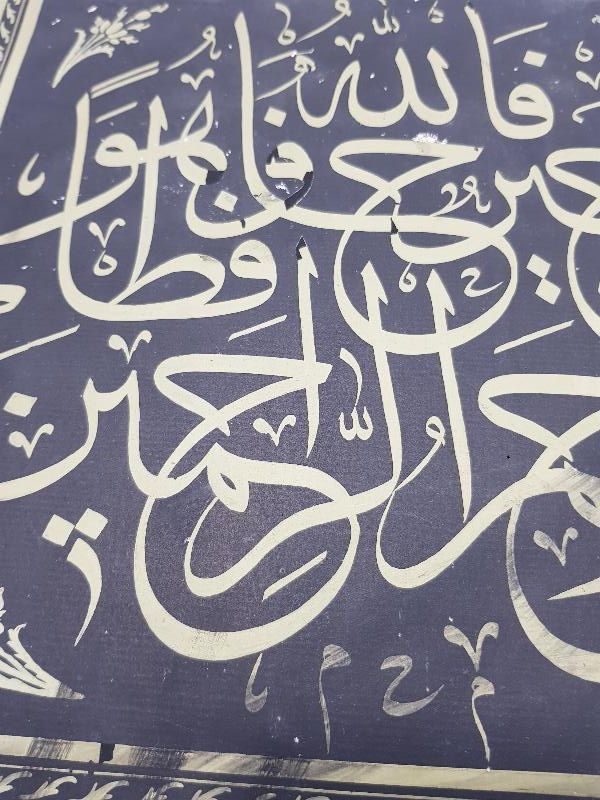 فالله خير حافظا وهو
ارحم الراحمين